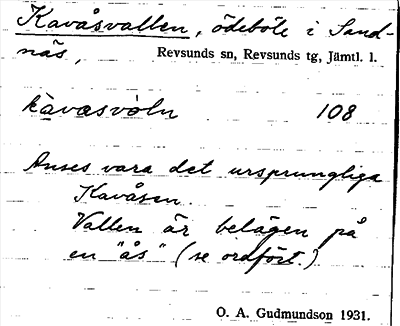 Kavåsvallen, ödeböle i Sand-
näs, Revsunds sn, Revsunds tg, Jämtl. l.
kàvasvòln 108
Anses vara det ursprungliga
Kavåsen.
Vallen är belägen på
en "ås" (se ordfört.)
O. A. Gudmundson 1931.